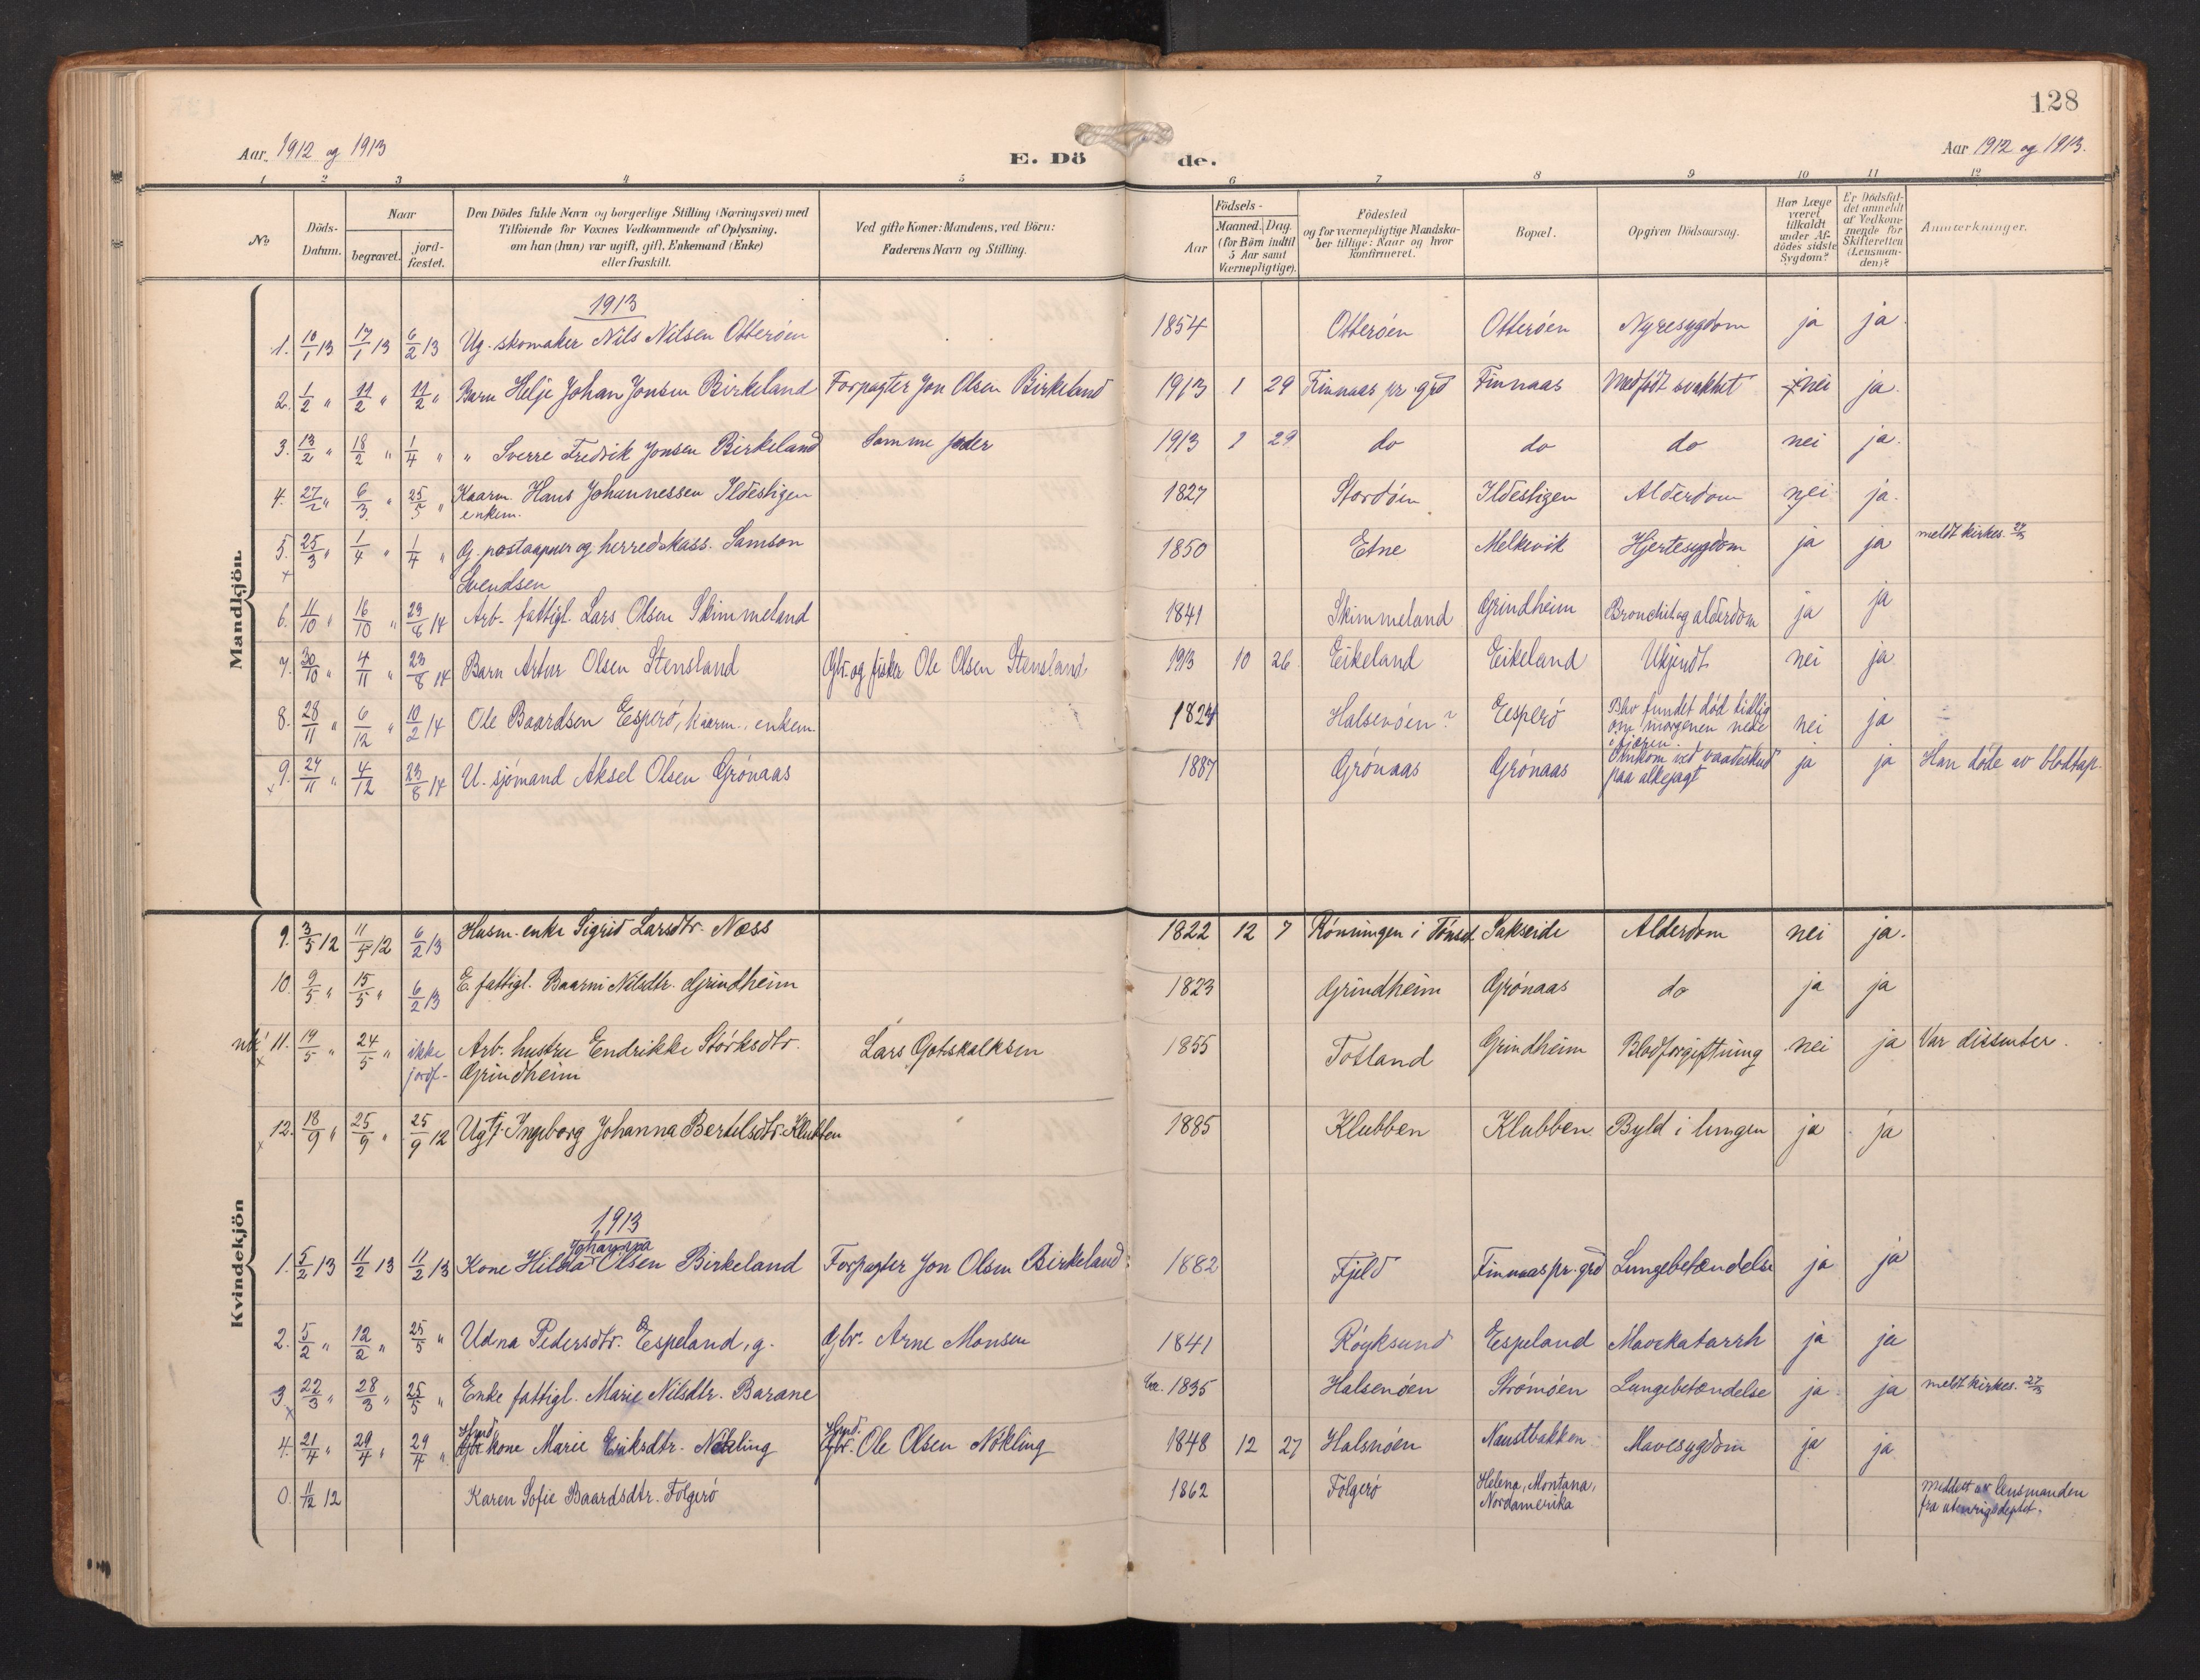 128
Aar 1912 og 1913
E. Dö de.
Aar 1912 og 1913.
1 2 3 4 5 6 7 8 9 10 11 12
No.
Döds-Datum.
Naar
begravet.
jord-fæstet.
Den Dödes fulde Navn og borgerlige Stilling (Næringsvei) med
Tilföiende for Voxnes Vedkommende af Oplysning,
om han (hun) var ugift, gift, Enkemand (Enke)
eller fraskilt.
Ved gifte Koner: Mandens, ved Börn:
Faderens Navn og Stilling.
Födsels-
Aar
Maaned. Dag.
(for Börn indtil
5 Aar samt
Værnepligtige).
Födested
og for værnepligtige Mandska-
ber tillige: Naar og hvor
konfirmeret.
Bopæl.
Opgiven Dödsaarsag.
Har Læge
været
tilkaldt
under Af-
dödes sidste
Sygdom?
Er Dödsfal-
det anmeldt
af Vedkom-
mende for
Skifteretten
(Lensman-
den)?
Anmærkninger.
Mandkjön.
1913
1. 10/1 13 17/1 13 6/2 13 Ug. skomaker Nils Nilsen Otteröen 1854 Otteröen Otteröen Nyresygdom ja ja.
2. 1/2 " 11/2 " 11/2 " Barn Helje Johan Jonsen Birkeland Forpagter Jon Olsen Birkeland 1913 1 29 Finnaas pr. grd Finnaas Medfödt svakhet nei ja.
3. 13/2 " 18/2 " 1/4 " " Sverre Fredrik Jonsen Birkeland Samme fader 1913 1 29 do do do nei ja.
4. 27/2 " 6/3 " 25/5 " Kaarm. Hans Johannessen Ildestigen 1827 Stordöen Ildestigen Alderdom nei ja.
enkem.
5. 25/3 " 1/4 " 1/4 " G. postaapner og herredskass. Samson 1850 Etne Melkevik Hjertesygdom ja ja meldt kirkes.
x Svendsen
6. 11/10 " 16/10 " 23/8 14 Arb. fattigl. Lars Olsen Skimmeland 1841 Skimmeland Grindheim Bronchit og alderdom ja ja
7. 30/10 " 4/11 " 23/8 14 Barn Artur Olsen Stensland Gbr. og fisker Ole Olsen Stensland 1913 10 26 Eikeland Eikeland Ukjendt nei ja.
8. 28/11 " 6/12 " 10/2 14 Ole Baardsen Esperö, kaarm., enkem. 1824 Halsenöen? Esperö Blev fundet död tidlig
om morgenen nede nei ja
i fjæren.
9. 24/11 " 4/12 23/8 14 U. sjömand Aksel Olsen Grönaas 1887 Grönaas Grönaas Omkom ved vaadeskud ja ja Han döde av blodtap.
x paa alkejagt
Kvindekjön
9. 3/5 12 11/5 12 6/2 13 Husm. enke Sigrid Larsdtr. Næss 1822 12 7 Rönningen i Sakseide Alderdom nei ja.
10. 9/5 " 15/5 " 6/2 13 E. fattigl. Baarni Nilsdtr. Grindheim 1823 Grindheim Grönaas do ja ja
11. 19/5 " 24/5 " ikke Arb. hustru Endrikke Störksdtr. Lars Gotskalksen 1855 Totland Grindheim Blodforgiftning nei ja Var dissenter.
x jordf- Grindheim
12. 18/9 " 25/9 " 25/9 12 Ugtj. Ingeborg Johanna Bertilsdtr. Klubben 1885 Klubben Klubben Byld i lungen ja ja
x
1913
Johanna
1. 5/2 13 11/2 13 11/2 13 Kone Hilda Olsen Birkeland Forpagter Jon Olsen Birkeland 1882 Fjeld Finnaas pr. grd Lungebetændelse ja ja
2. 5/2 " 12/2 " 25/5 " Udna Pedersdtr. Espeland, g. Gbr. Arne Monsen 1841 Röyksund Espeland Mavekatarrh ja ja
3. 22/3 " 28/3 " 25/5 " Enke fattigl. Marie Nilsdtr. Barane ca. 1835 Halsenöen Strömöen Lungebetændelse ja ja meldt kirkes.
x
4. 21/4 " 29/4 " 29/4 " kone Marie Eriksdtr. Nökling Ole Olsen Nökling 1848 12 27 Halsnöen Naustbakken Mavesygdom ja ja
0. 11/12 12 Karen Sofie Baardsdtr. Folgerö 1862 Folgerö Helena, Montana,
Nordamerika
meddelt av lensmanden
fra utenrigsdeptet.